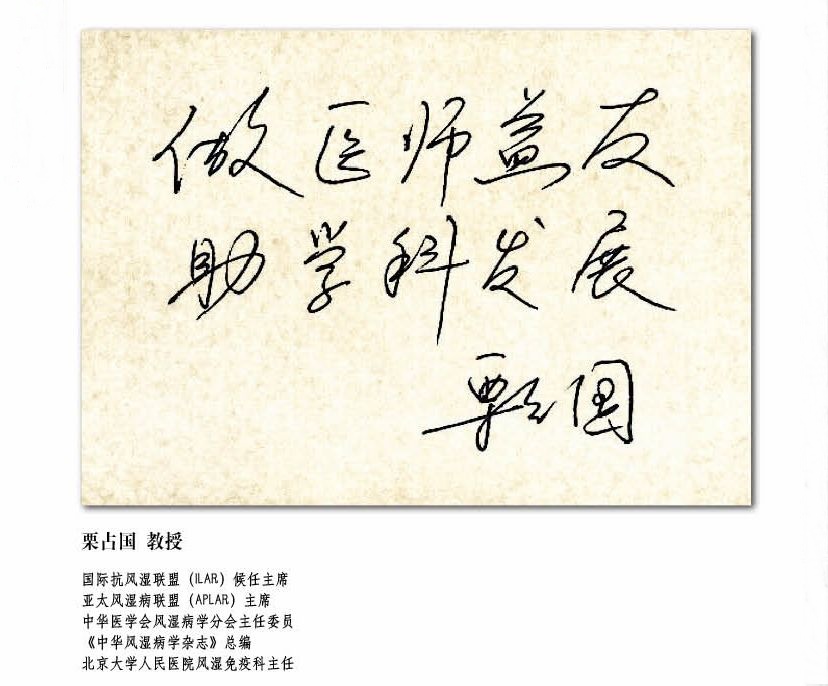 做医师益友
助学科发展
栗占国
栗占国 教授
国际抗风湿联盟（ILAR）候任主席
亚太风湿病联盟（APLAR）主席
中华医学会风湿病学分会主任委员
《中华风湿病学杂志》总编
北京大学人民医院风湿免疫科主任